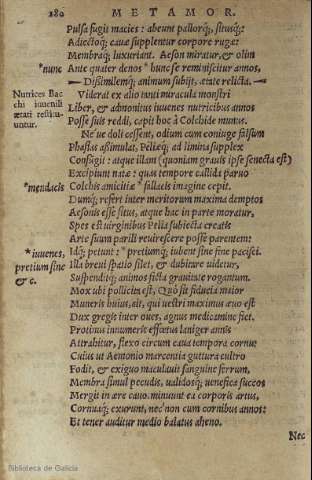 280 METAMOR.
Pulsa fugit macies: abeunt pallorq́;, situsq́;:
Adiectoq́; cauæ supplentur corpore rugæ:
Membraq́; luxuriant. Aeson miratur, & olim
*nunc Ante quater denos *hunc se reminiscitur annos,
—Dissimilemq́; animum subijt. ætate relicta.—
Nutrices Bac Viderat ex alto tanti miracula monstri
chi iuuenili Liber, & admonitus iuuenes nutricibus annos
ætati restitu- Posse suis reddi, capit hoc à Colchide munus.
untur. Ne ue doli cessent, odium cum coniuge falsum
Phasias aßimulat, Peliæq́; ad limina supplex
Confugit: atque illam (quoniam grauis ipse senecta est)
Excipiunt natæ: quas tempore callida paruo
*mendacis Colchis amicitiæ *fallacis imagine cepit.
Dumq́; refert inter meritorum maxima demptos
Aesonis esse situs, atque hac in parte moratur,
Spes est uirginibus Pelia subiecta creatis
Arte suum parili reuirescere posse parentem:
*iuuenes, Idq́; petunt: *pretiumq́; iubent sine fine pacisci.
pretium sine Illa breui spatio silet, & dubitare uidetur,
& c. Suspenditq́; animos ficta grauitate rogantum.
Mox ubi pollicita est, Quò sit fiducia maior
Muneris huius, ait, qui uestri maximus æuo est
Dux gregis inter oues, agnus medicamine fiet.
Protinus innumeris effœtus laniger annis
Attrahitur, flexo circum caua tempora cornu:
Cuius ut Aemonio marcentia guttura cultro
Fodit, & exiguo maculauit sanguine ferrum,
Membra simul pecudis, ualidosq́; uenefica succos
Mergit in ære cauo. minuunt ea corporis artus,
Cornuaq́; exurunt, nec non cum cornibus annos:
Et tener auditur medio balatus aheno.
Nec
Biblioteca de Galicia